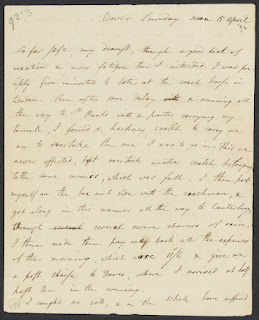 92-3
Dover Sunday noon 15 April
So far safe my dearest, through a good deal of
vexation & more fatigue than I intended. I was pre
cisely five minutes to late at the coach house in
London. Then after some delay & running all
the way to St. Pauls with a porter carrying my
trunk, I found a hackney coach to carry me
on to overtake the one I was to go in. This we
never effected, but overtook another coach belonging
to the same owners, which was full. I then put
myself on the box out side with the coachman, &
got along in this manner all the way to Canterbury,
through several severe showers of rain.
I there made them pay back all the expences
of the morning, which were 15/6, & give me
a post chaise to Dover, where I arrived at half
past ten in the evening.
I caught no cold, & on the whole have suffered